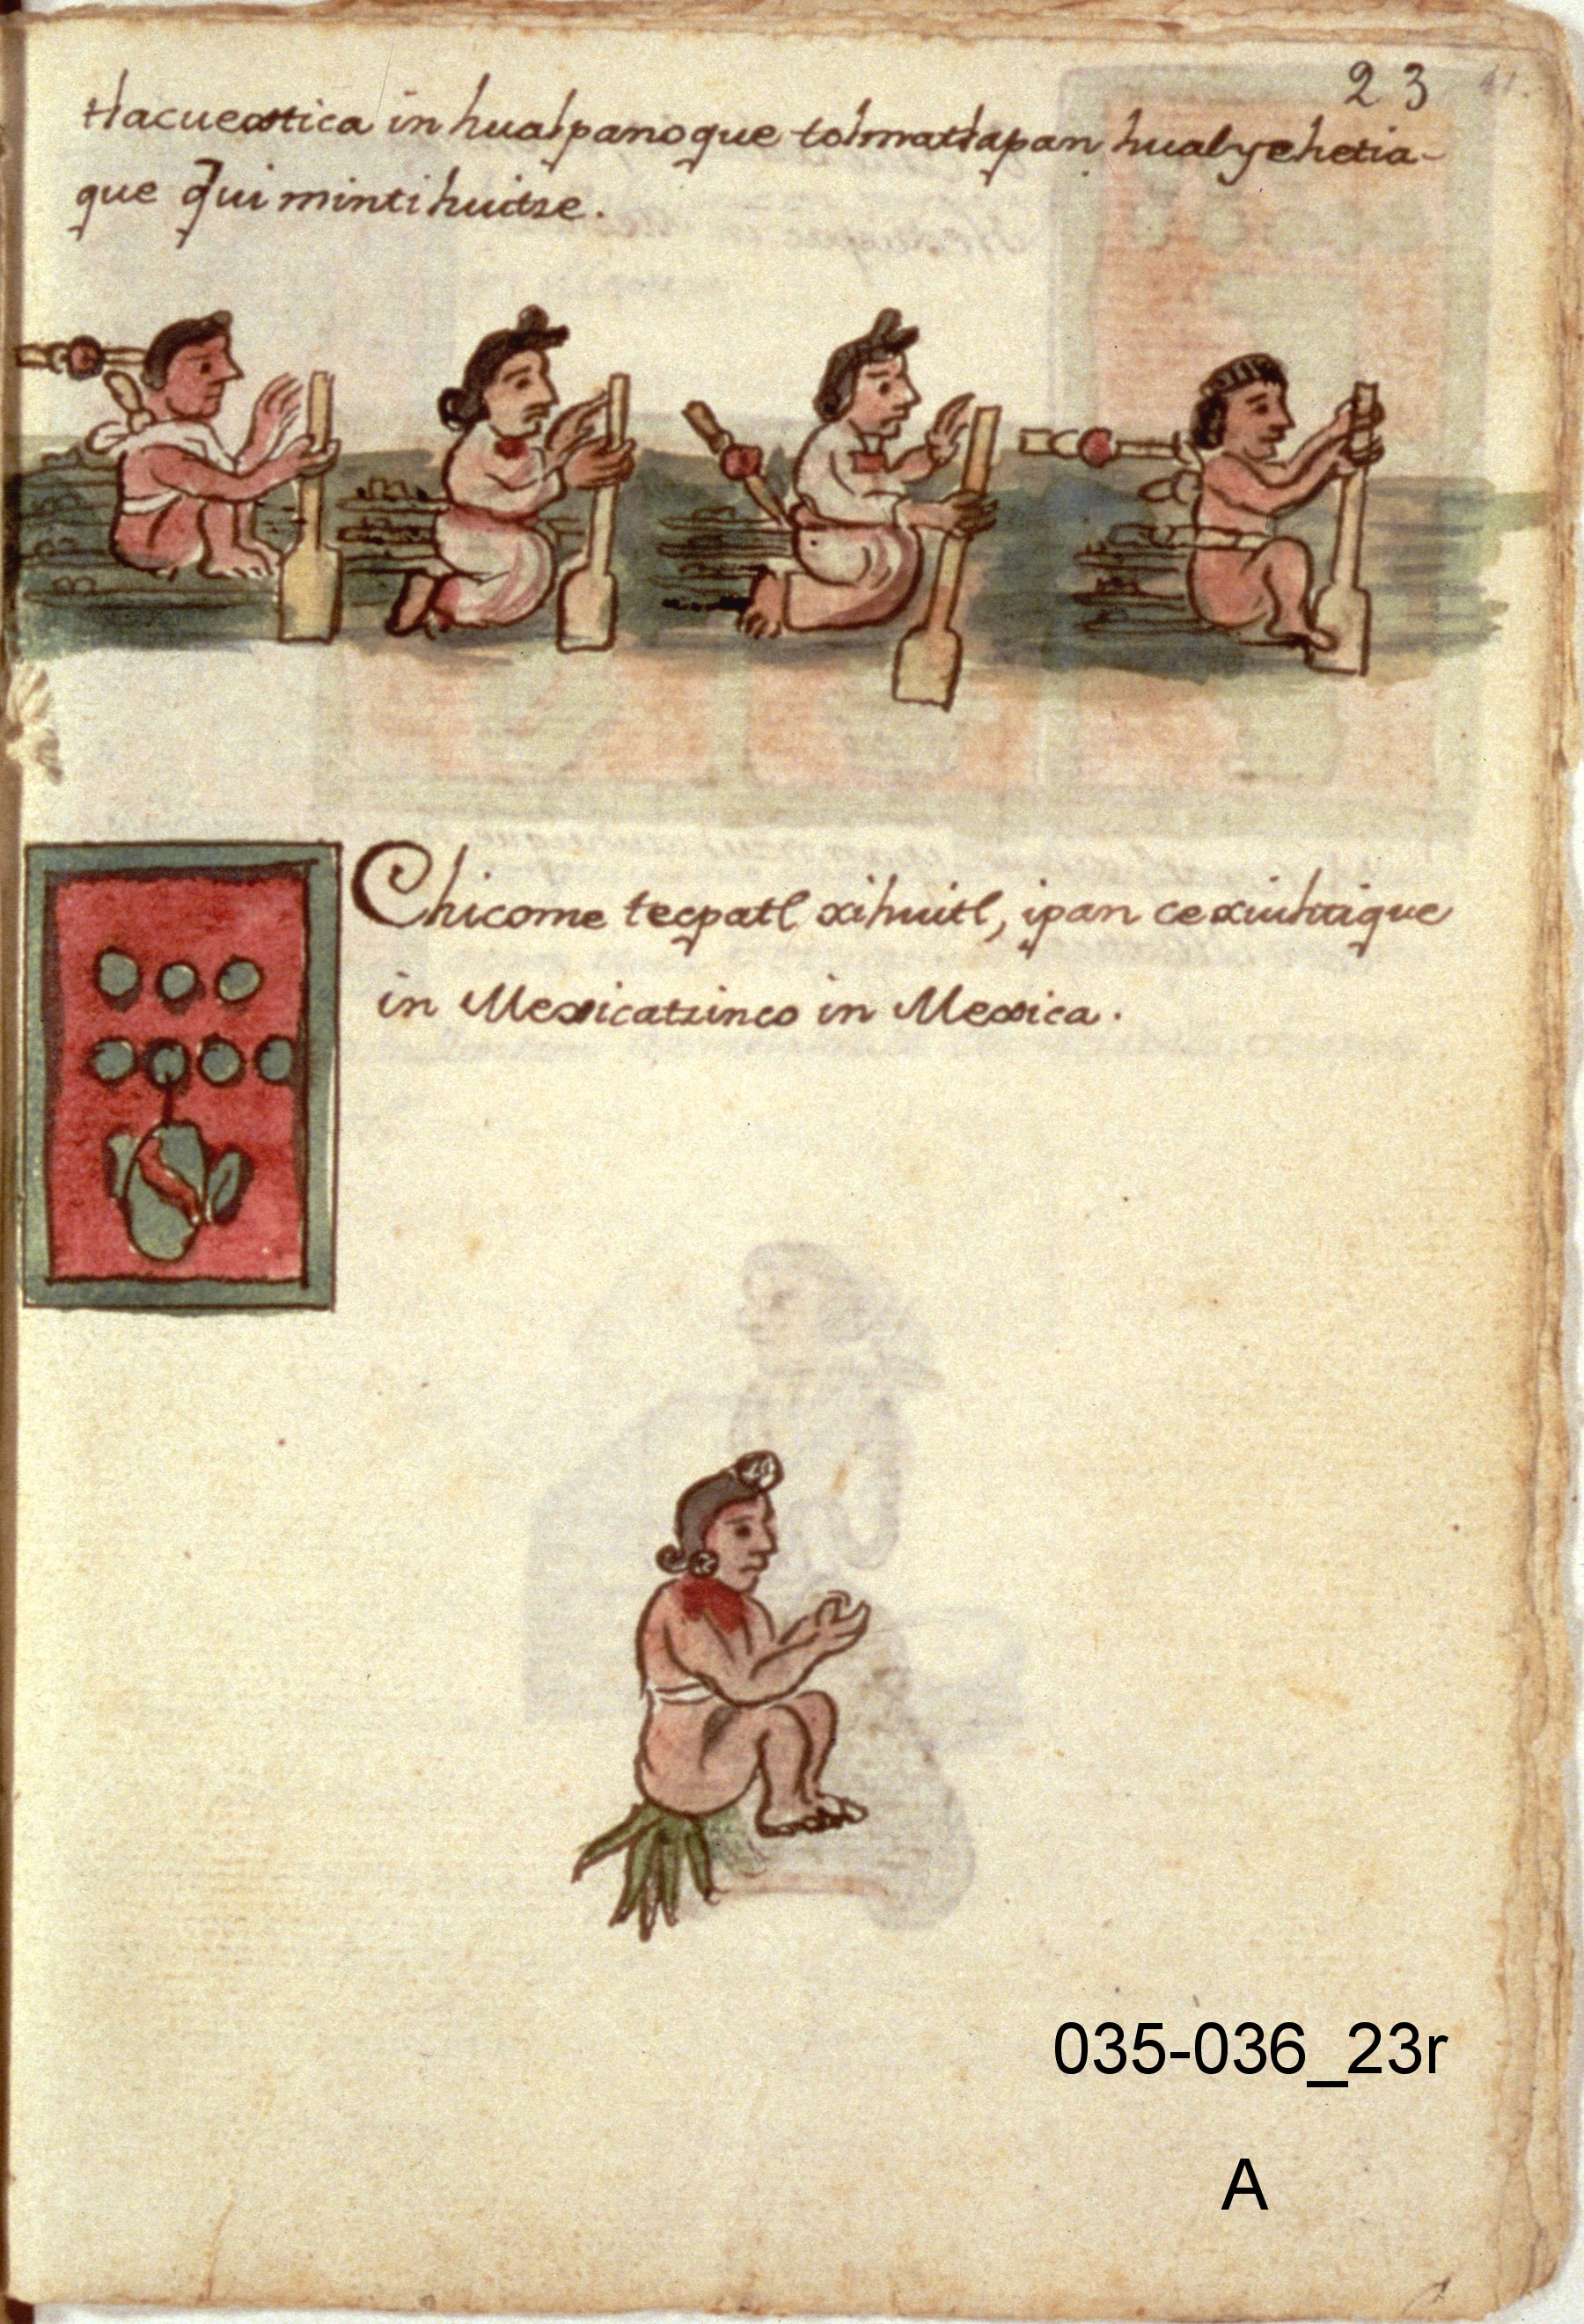 23
tlacuextica in hualpanoque tolmatlapan hualyehetia-
que q̃uimintihuitze.
Chicome tecpatl xihuitl, ipan cexiuhtique
in Mexicatzinco in Mexica.
035-036_23r
A